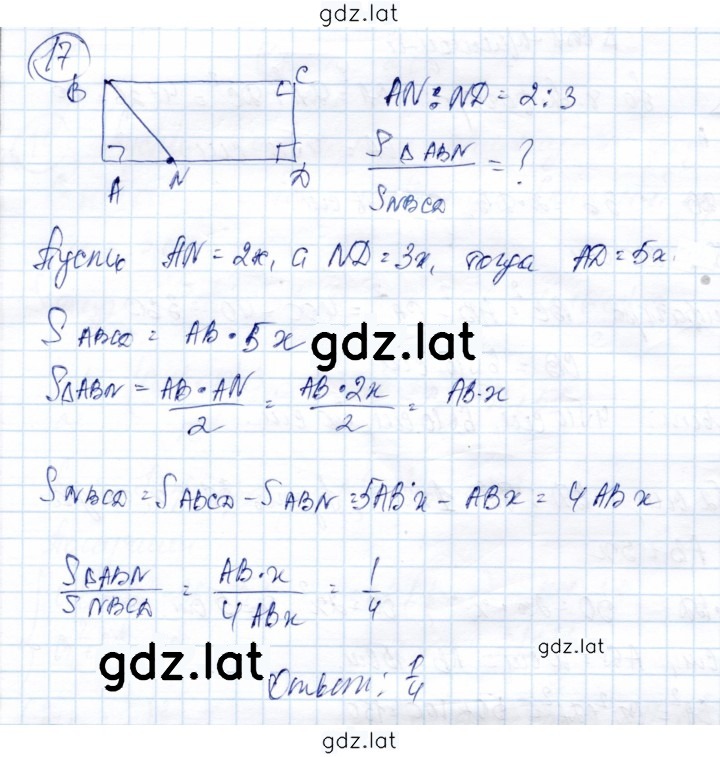 gdz.lat
17
B C
A N D
AN : ND = 2 : 3
S△ABN / SNBCD = ?
Пусть AN = 2x, а ND = 3x, тогда AD = 5x.
SABCD = AB · 5x
gdz.lat
S△ABN = AB · AN / 2 = AB · 2x / 2 = AB · x
SNBCD = SABCD - SABN = 5AB·x - ABx = 4ABx
S△ABN / SNBCD = AB · x / 4ABx = 1/4
gdz.lat
gdz.lat
Ответ: 1/4
gdz.lat